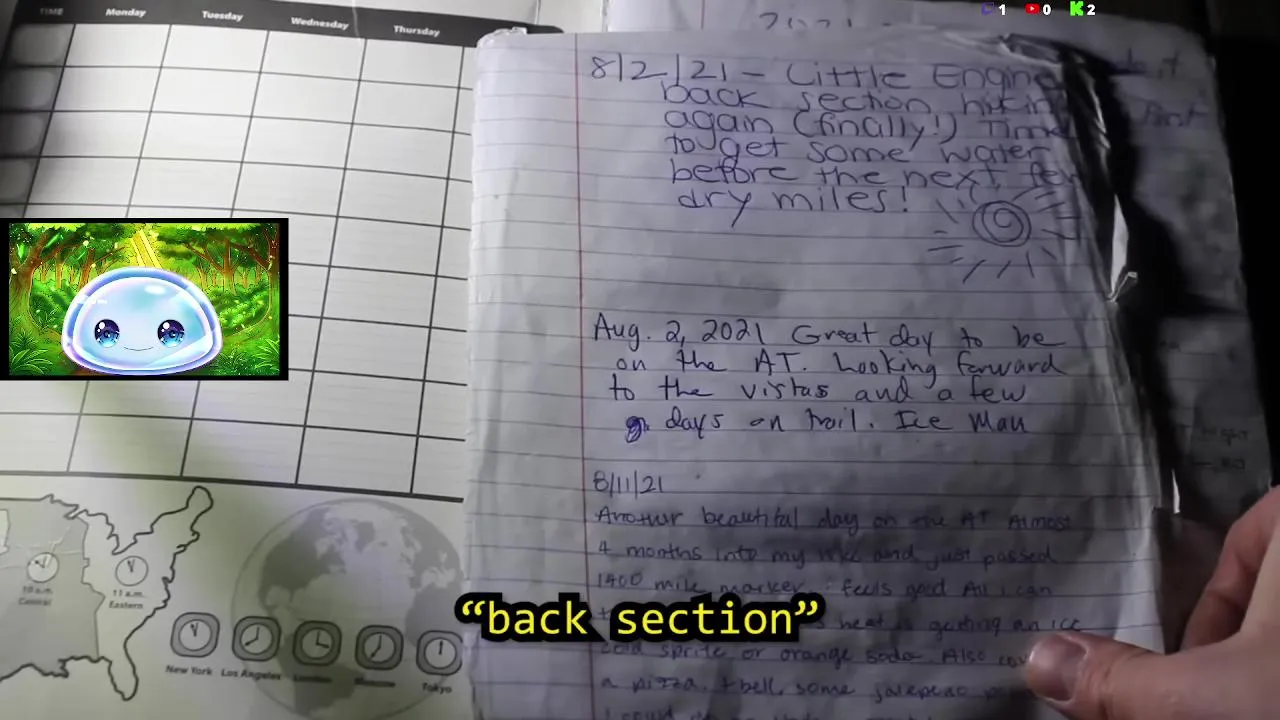 1 0 2
TIME Monday Tuesday Wednesday Thursday
2021
8/2/21 - Little Engine
back section, hiking
again (finally!) Time
to get some water
before the next few
dry miles!
Aug. 2, 2021 Great day to be
on the AT. Looking forward
to the vistas and a few
days on trail. Ice Man
8/11/21
Another beautiful day on the AT Almost
4 months into my hike and just passed
1400 mile marker. feels good All i can
heat is getting an ice
cold sprite or orange soda. Also
a pizza, tbell, some jalapeno
I could
10 a.m.
Central
11 a.m.
Eastern
New York Los Angeles London Moscow Tokyo
“back section”